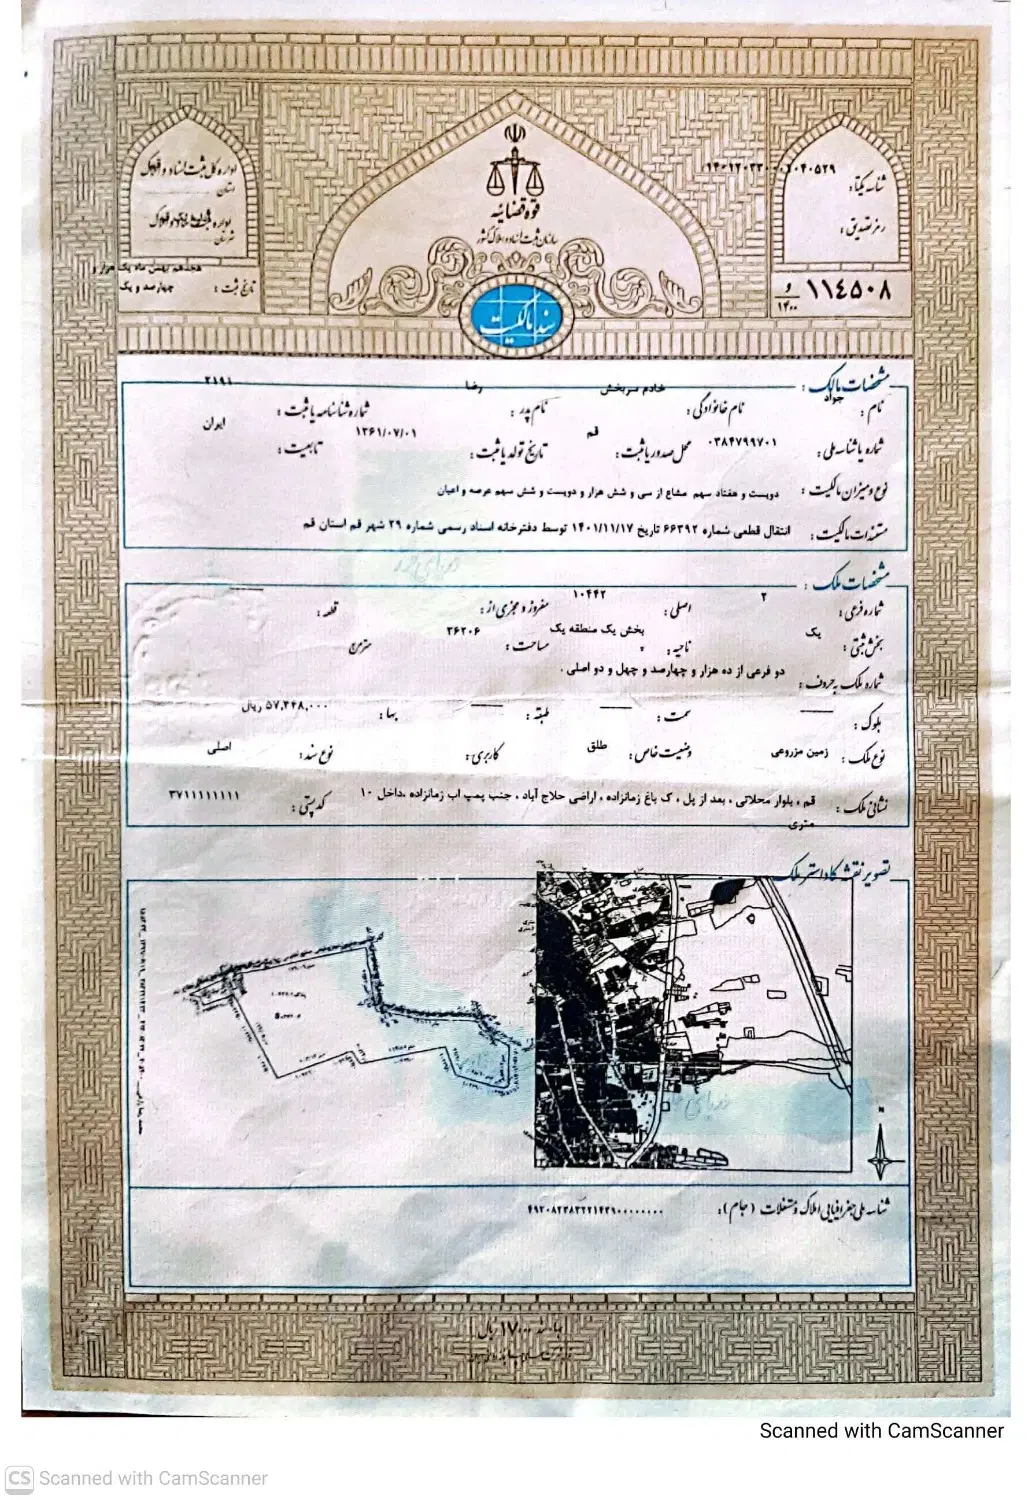 قوه قضائیه
سازمان ثبت اسناد و املاک کشور
سند مالکیت
شناسه یکتا:
رمز تصدیق:
۱۱۴۵۰۸ و ۱۴۰۰
اداره کل ثبت اسناد و املاک
استان
شهرستان
تاریخ ثبت : هجدهم بهمن ماه یک هزار و
چهارصد و یک
مشخصات مالک :
نام : جواد نام خانوادگی : خادم سربخش نام پدر : رضا شماره شناسنامه یا ثبت : ۲۱۹۱
شماره یا شناسه ملی : ۰۳۸۴۷۹۹۷۰۱ محل صدور یا ثبت : قم تاریخ تولد یا ثبت : ۱۳۶۱/۰۷/۰۱ تابعیت : ایران
نوع و میزان مالکیت : دویست و هفتاد سهم مشاع از سی و شش هزار و دویست و شش سهم عرصه و اعیان
مستندات مالکیت : انتقال قطعی شماره ۶۶۳۹۲ تاریخ ۱۴۰۱/۱۱/۱۷ توسط دفترخانه اسناد رسمی شماره ۲۹ شهر قم استان قم
مشخصات ملک :
شماره فرعی : ۲ اصلی : ۱۰۴۴۲ مفروز و مجزی از : قطعه :
بخش ثبتی : یک ناحیه : بخش یک منطقه یک مساحت : ۳۶۲۰۶ مترمربع
شماره ملک به حروف : دو فرعی از ده هزار و چهارصد و چهل و دو اصلی .
بلوک : سمت : طبقه : بها : ۵۷,۲۴۸,۰۰۰ ریال
نوع ملک : زمین مزروعی وضعیت خاص : طلق کاربری : نوع سند : اصلی
نشانی ملک : قم ، بلوار محلاتی ، بعد از پل ، ک باغ زمانزاده ، اراضی حلاج آباد ، جنب پمپ اب زمانزاده ،داخل ۱۰ کد پستی : ۳۷۱۱۱۱۱۱۱۱
متری
تصویر نقشه کاداستر ملک
N
شناسه ملی جغرافیایی املاک و مستغلات (جام) :
Scanned with CamScanner
CS Scanned with CamScanner